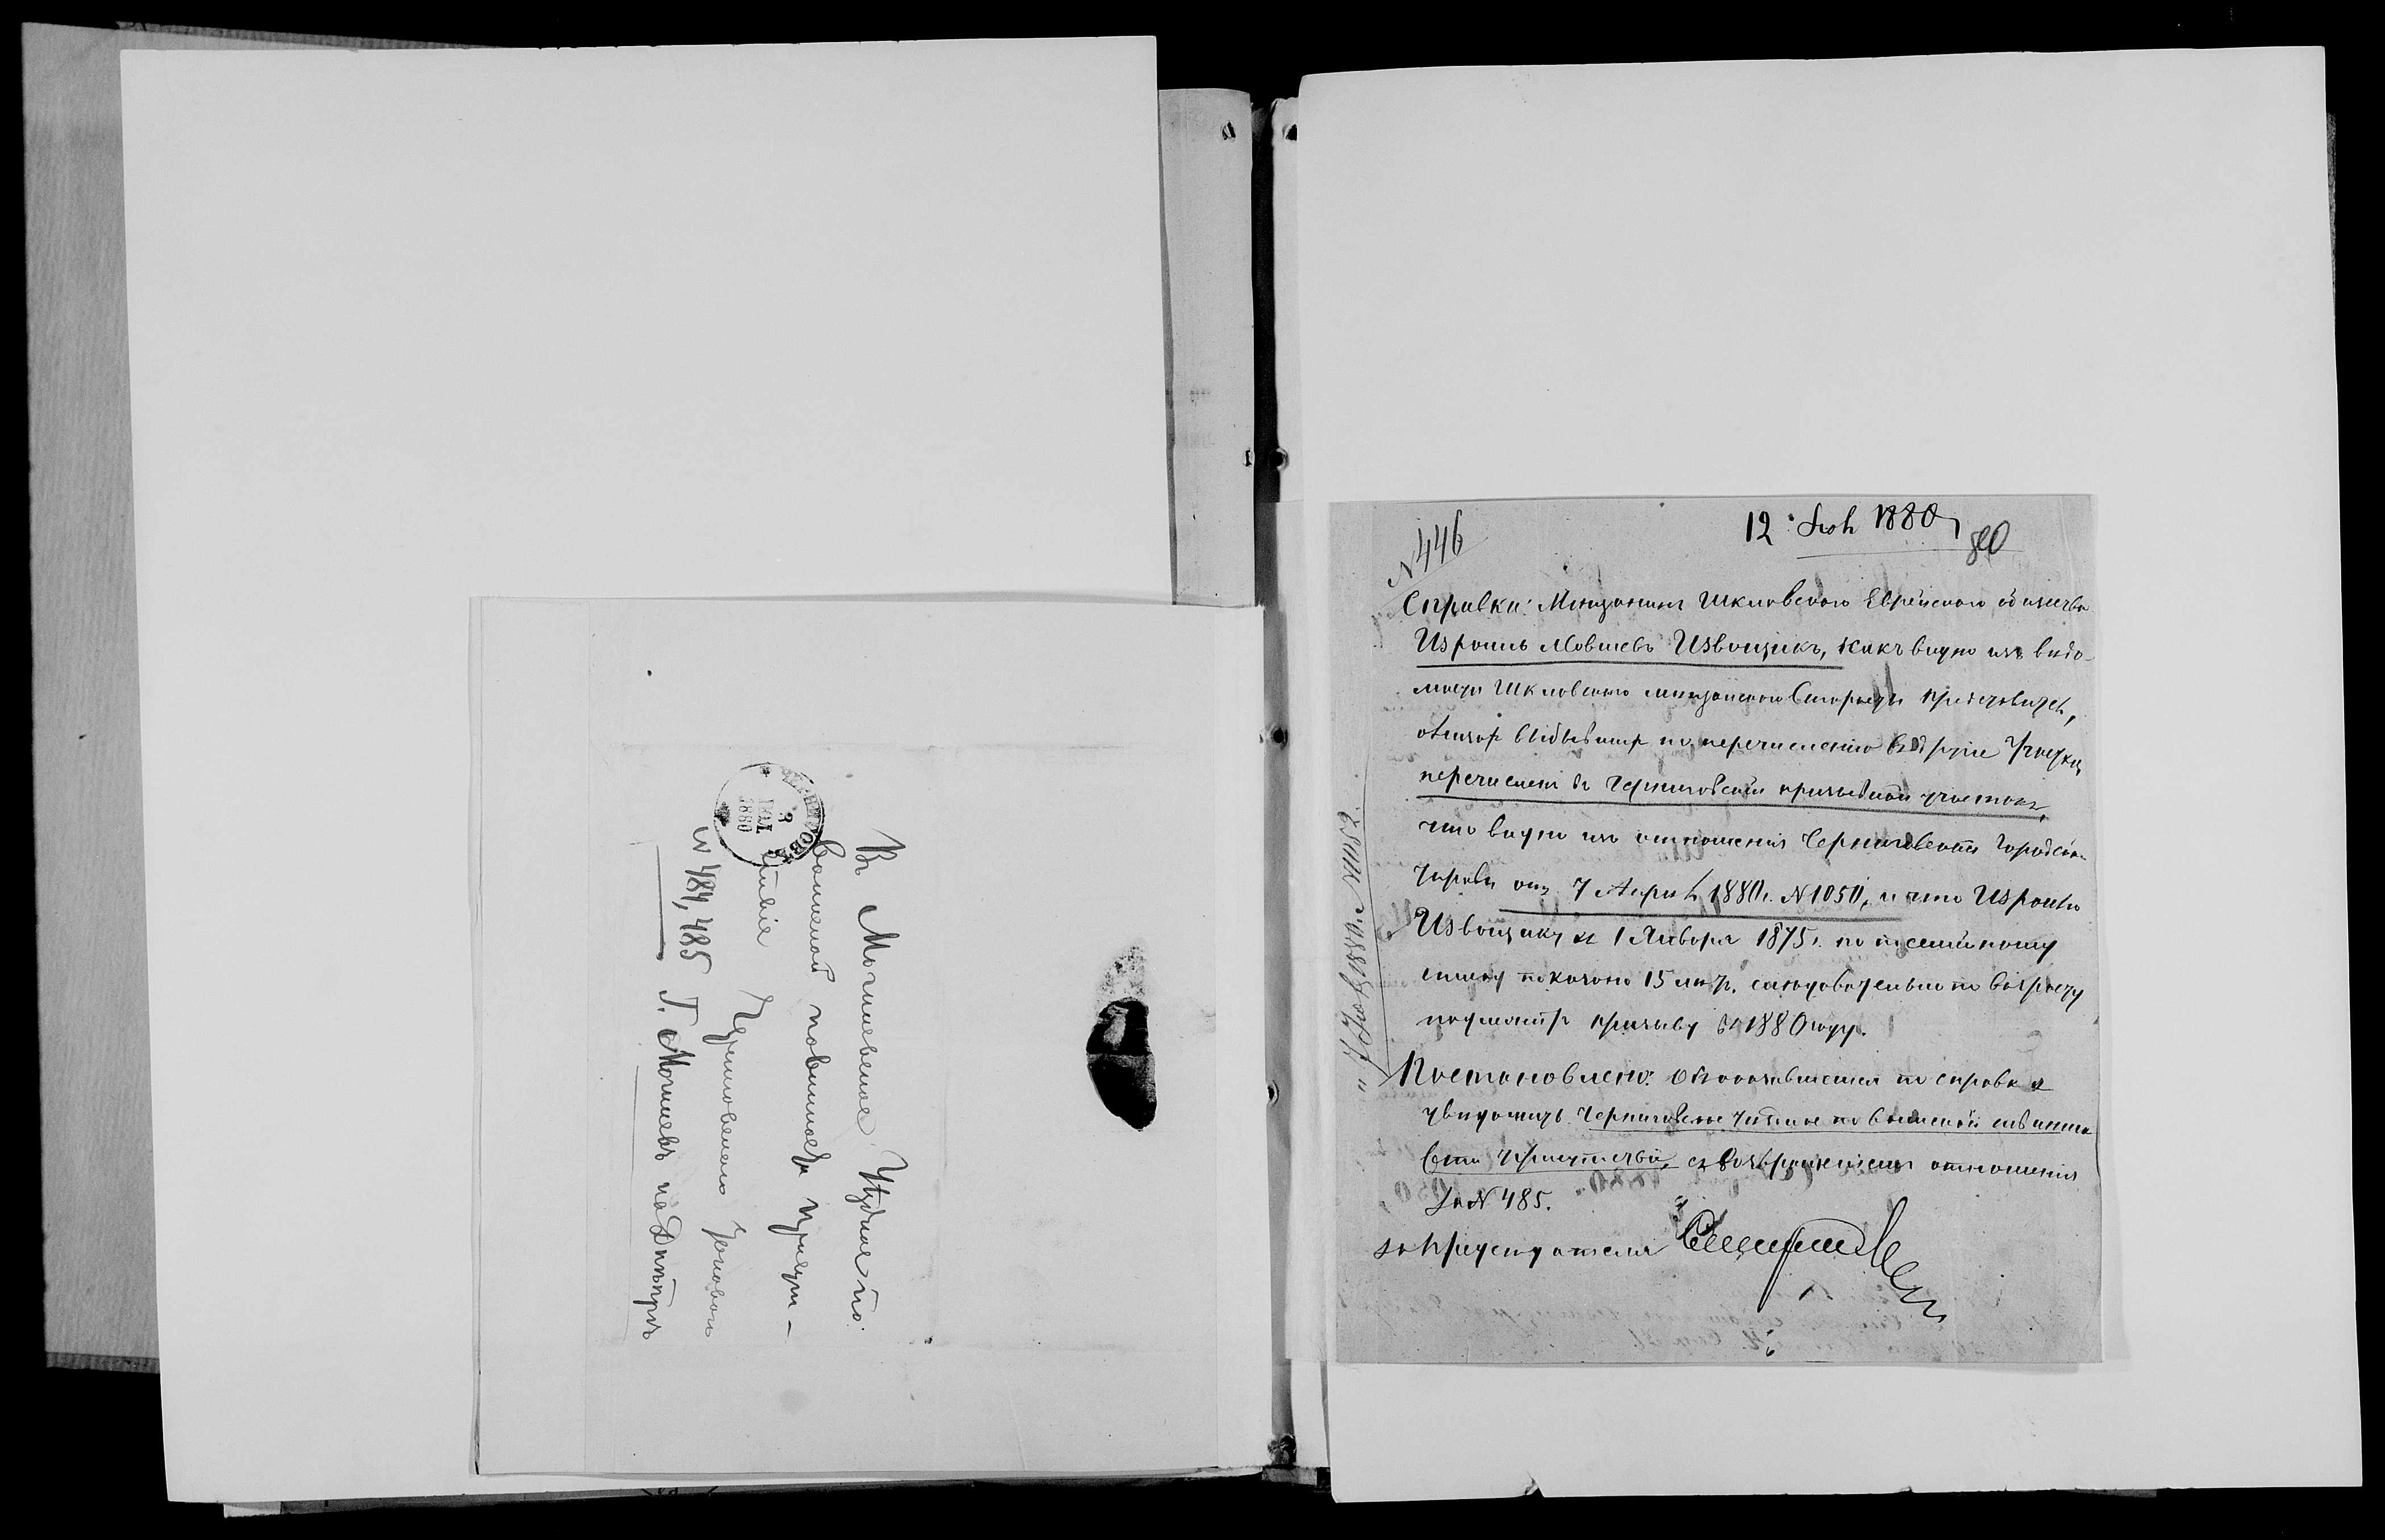 Въ Могилевское Уѣздное по
воинской повинности Присут-
ствіе
Черниговскаго Уѣзднаго
№ 484, 485 Г. Могилевъ на Днѣпрѣ
3
ІЮЛ
1880
№ 446
12 Іюл 1880 г.
Справка: Мѣщанинъ Шкловскаго Еврейскаго общества
Израиль Мовшевъ Извощикъ, какъ видно изъ вѣдо-
мости Шкловскаго мѣщанскаго Старосты представлен,
о лицах выбывших по перечисленію въ другіе Участки,
перечислен въ Черниговскій призывной участокъ,
что видно изъ отношенія Черниговской Городской
Управы отъ 7 Апрѣл 1880 г. № 1050, и что Израилю
Извощику къ 1 Января 1875 г. по посемейному
списку показано 15 лѣтъ, слѣдовательно по возрасту
подлежитъ призыву въ 1880 году.
Постановлено: Объ оказавшемся по справкѣ
увѣдомить Черниговское Уѣздное по воинской повинно
сти Присутствіе, съ возвращеніемъ отношенія
за № 485.
за Предсѣдателя
7 Іюл 1880 г. № 1152.